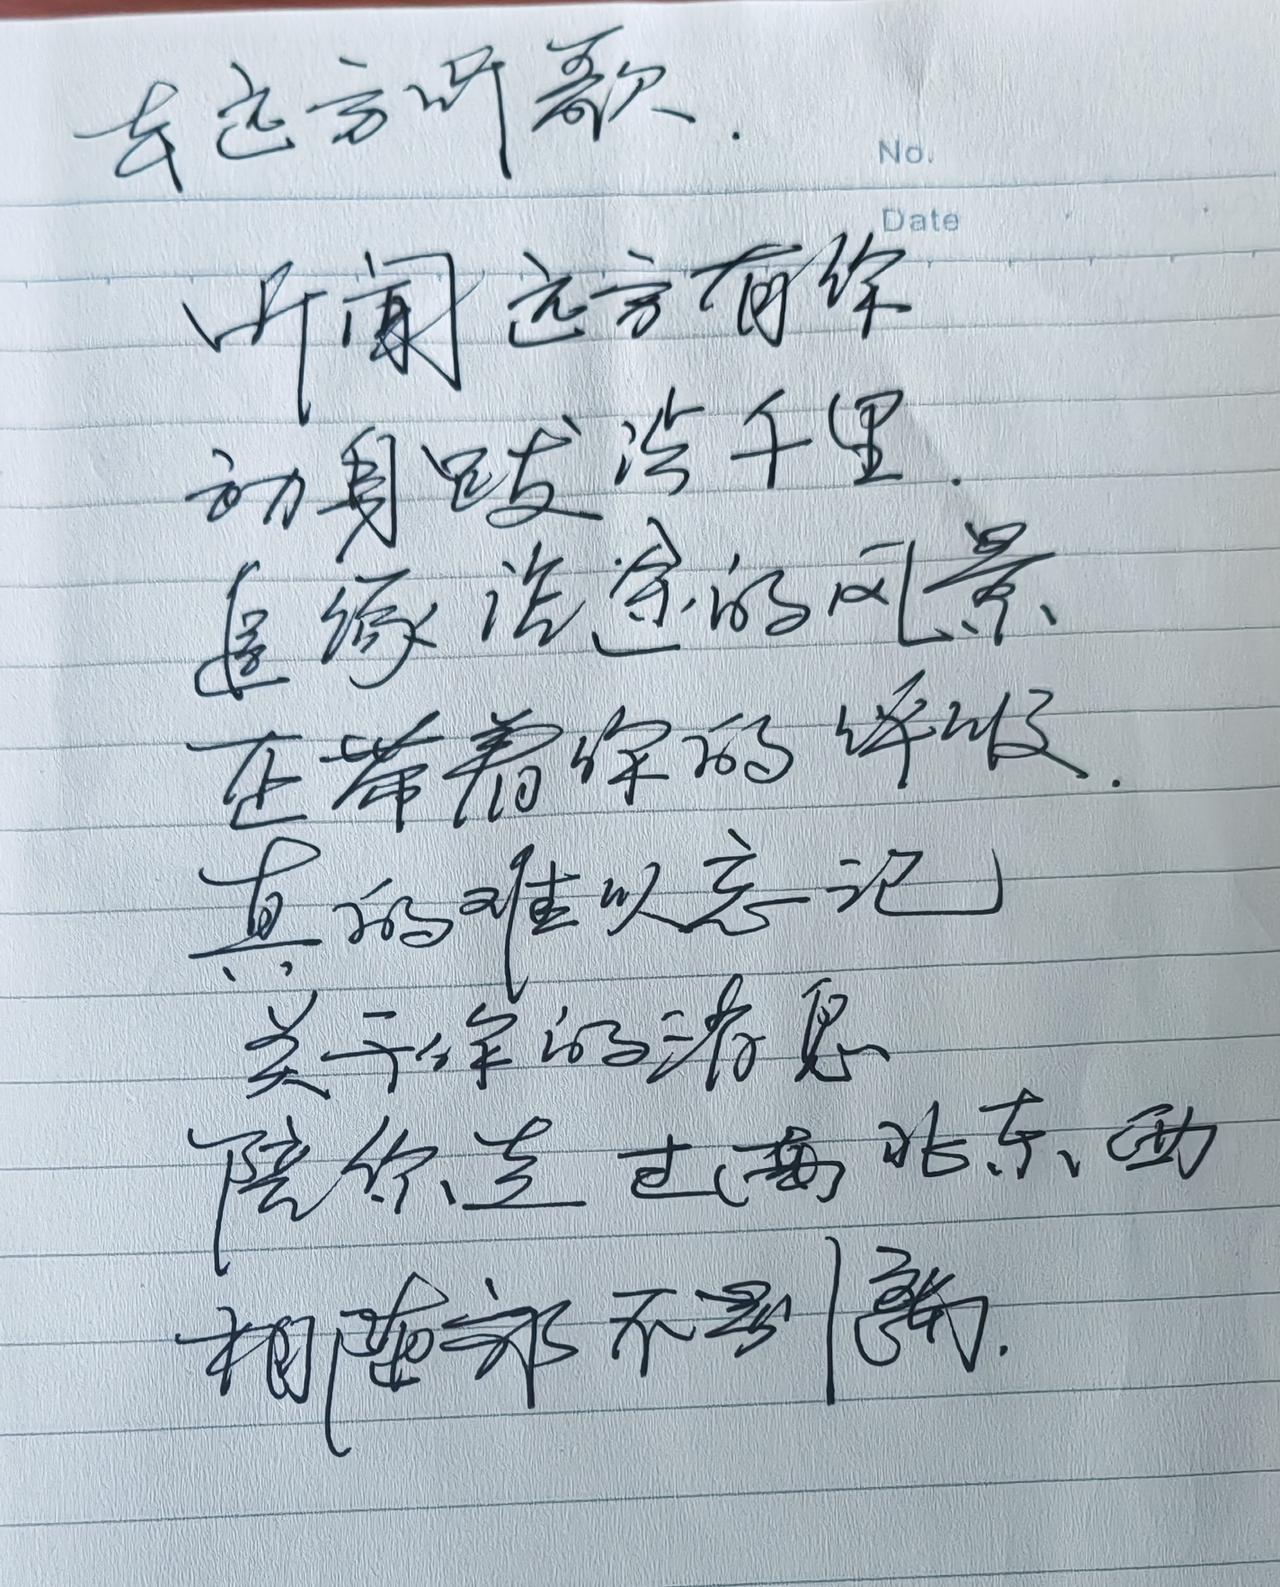 去远方听歌.
No.
Date
听闻远方有你
动身跋涉千里.
追逐沿途的风景
还带着你的呼吸.
真的难以忘记
关于你的消息
陪你走过南北东西
相随都不是离.